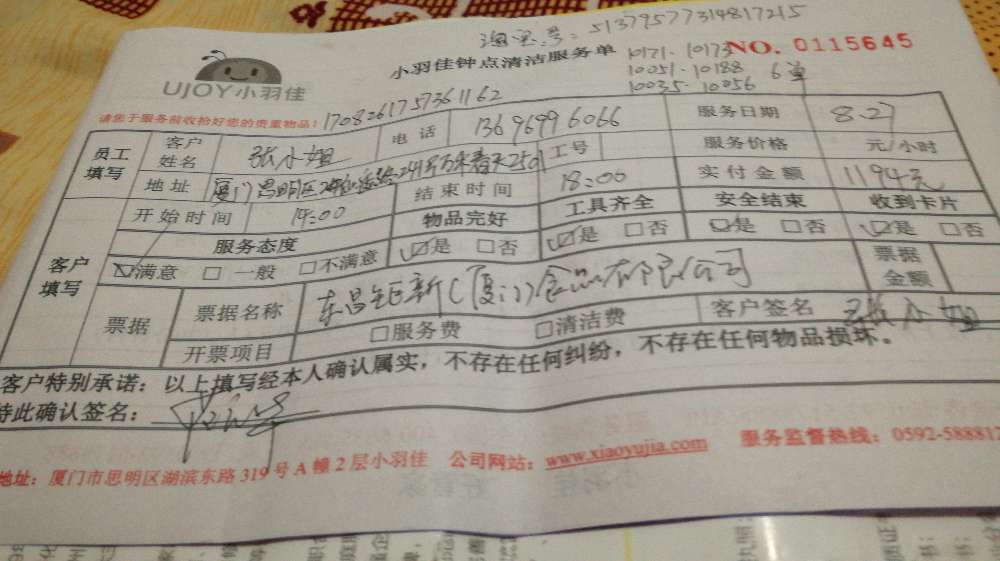 淘宝号:51379577314817215
UJOY小羽佳
小羽佳钟点清洁服务单
10171.10173
10051.10188 6单
10035.10056
NO. 0115645
请您于服务前收拾好您的贵重物品! 1708261757361162
员工填写 客户姓名 张小姐 电话 13696996066 服务日期 8.27
地址 厦门思明区 工号 服务价格 元/小时
开始时间 14:00 结束时间 18:00 实付金额 1194元
客户填写 服务态度 物品完好 工具齐全 安全结束 收到卡片
☑满意 □一般 □不满意 ☑是 □否 ☑是 □否 ☑是 □否 ☑是 □否
票据 票据名称 (厦门)食品有限公司 票据金额
开票项目 □服务费 □清洁费 客户签名 张小姐
客户特别承诺:以上填写经本人确认属实,不存在任何纠纷,不存在任何物品损坏。
特此确认签名:
地址:厦门市思明区湖滨东路319号A幢2层小羽佳 公司网站:www.xiaoyujia.com 服务监督热线:0592-588812